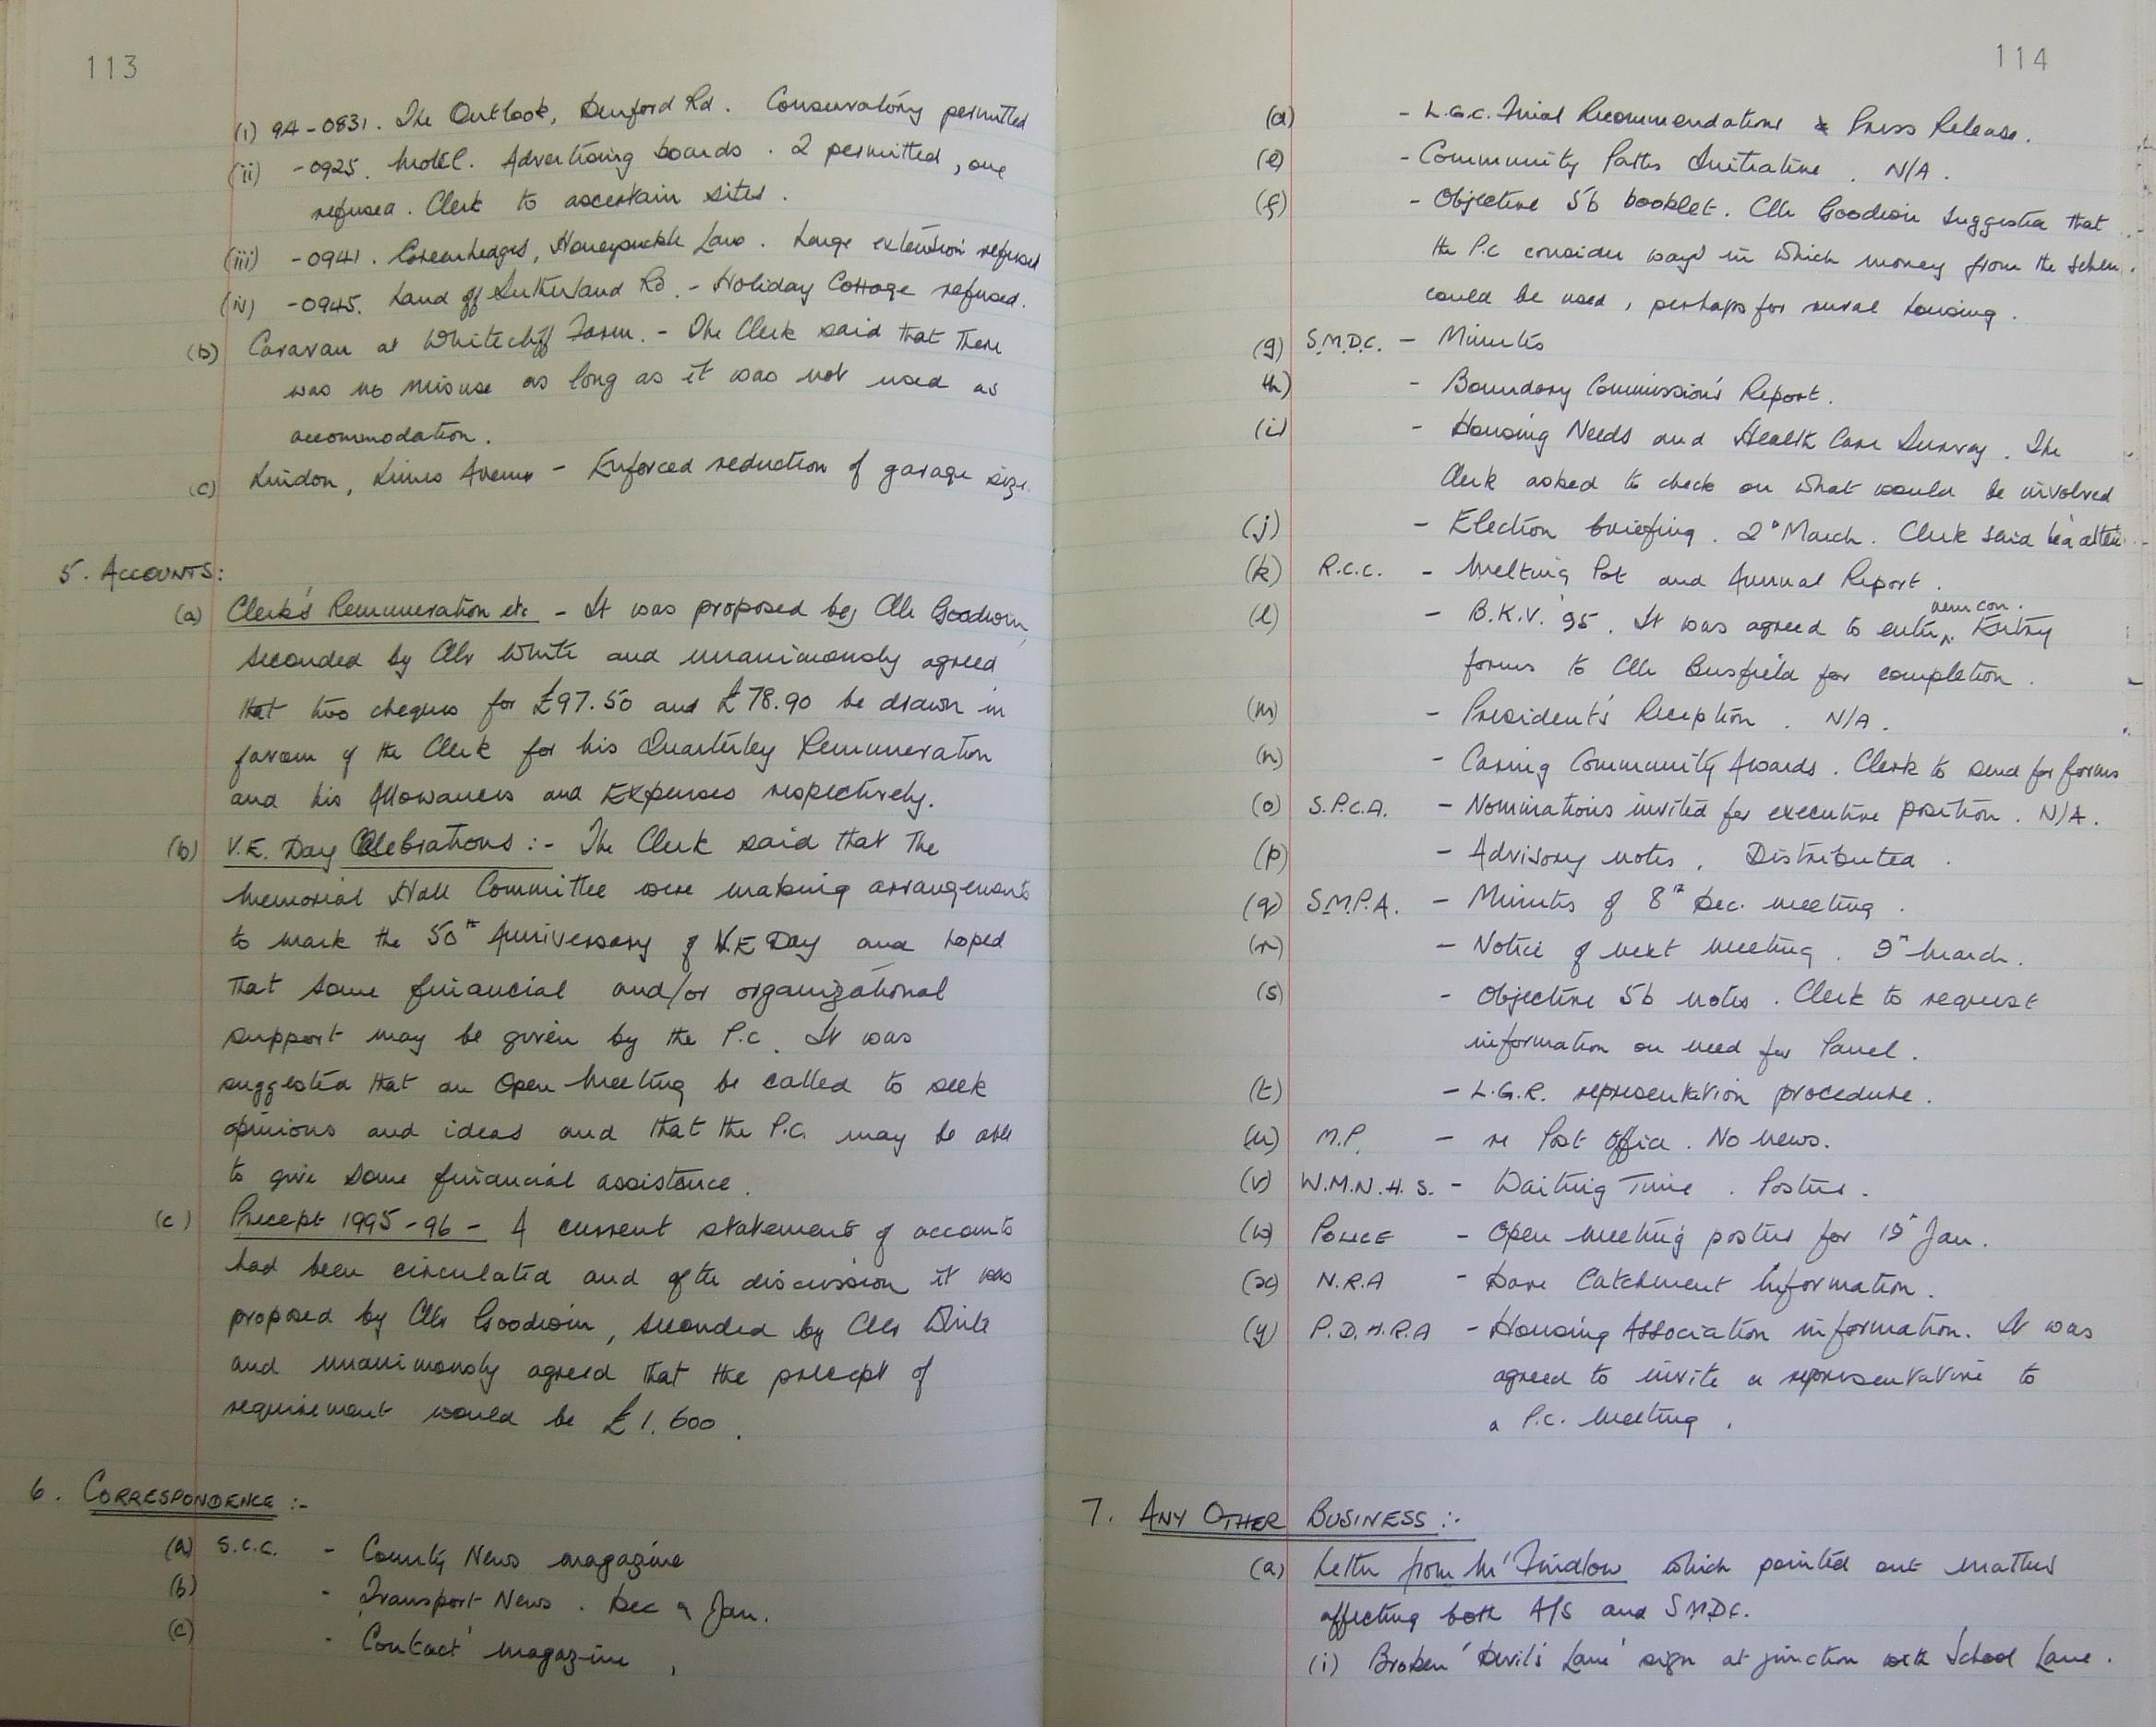 113
(i) 94-0831. The Outlook, Denford Rd. Conservatory permitted
(ii) -0925. Motel. Advertising boards. 2 permitted, one
refused. Clerk to ascertain sites.
(iii) -0941. Greenhedges, Honeysuckle Lane. Large extension refused
(iv) -0945. Land off Sutherland Rd. - Holiday Cottage refused.
(b) Caravan at Whitecliff Farm. - The Clerk said that there
was no misuse as long as it was not used as
accommodation.
(c) Avenue - Enforced reduction of garage size.
5. ACCOUNTS:
(a) Clerk's Remuneration etc - It was proposed by Cllr Goodwin,
seconded by Cllr White and unanimously agreed
that two cheques for £97.50 and £78.90 be drawn in
favour of the Clerk for his Quarterley Remuneration
and his Allowances and Expenses respectively.
(b) V.E. Day Celebrations :- The Clerk said that the
Memorial Hall Committee were making arrangements
to mark the 50th Anniversary of V.E Day and hoped
that some financial and/or organizational
support may be given by the P.C. It was
suggested that an Open Meeting be called to seek
opinions and ideas and that the P.C. may be able
to give some financial assistance.
(c) Precept 1995-96 - A current statement of accounts
had been circulated and after discussion it was
proposed by Cllr Goodwin, seconded by Cllr
and unanimously agreed that the precept of
requirement would be £1,600.
6. CORRESPONDENCE :-
(a) S.C.C. - County News magazine
(b) - Transport News. Dec & Jan.
(c) - 'Contact' magazine,
114
(d) - L.G.C. Final Recommendations & Press Release.
(e) - Community Paths Initiative. N/A.
(f) - Objective 5b booklet. Cllr Goodwin suggested that
the P.C consider ways in which money from the schem
could be used, perhaps for rural housing.
(g) S.M.D.C. - Minutes
(h) - Boundary Commission's Report.
(i) - Housing Needs and Health Care Survey. The
Clerk asked to check on what would be involved
(j) - Election briefing. 2nd March. Clerk said he'd atten
(k) R.C.C. - Melting Pot and Annual Report.
(l) - B.K.V. '95. It was agreed to enter nem con. Entry
forms to Cllr Busfield for completion.
(m) - President's Reception. N/A.
(n) - Caring Community Awards. Clerk to send for forms
(o) S.P.C.A. - Nominations invited for executive position. N/A.
(p) - Advisory notes. Distributed.
(q) S.M.P.A. - Minutes of 8th Dec. meeting.
(r) - Notice of next meeting. 9th March.
(s) - Objective 5b notes. Clerk to request
information on need for Panel.
(t) - L.G.R. representation procedure.
(u) M.P. - re Post Office. No news.
(v) W.M.N.H.S. - Waiting Time. Poster.
(w) POLICE - Open meeting poster for 19th Jan.
(x) N.R.A - Dove Catchment Information.
(y) P.D.H.R.A - Housing Association information. It was
agreed to invite a representative to
a P.C. meeting.
7. ANY OTHER BUSINESS :-
(a) Letter from Mr Findlow which pointed out matters
affecting both A/S and S.M.D.C.
(i) Broken 'Devil's Lane' sign at junction with School Lane.